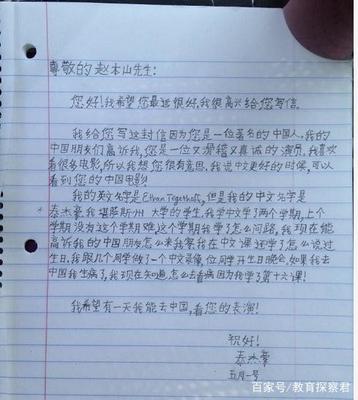 尊敬的赵本山先生:
您好!我希望您最近很好,我很高兴给您写信。
我给您写这封信因为您是一位著名的中国人。我的
中国朋友们告诉我,您是一位又滑稽又真诚的演员。我喜欢
看很多电影,所以我想您很有意思。我说中文更好的时候,可以
看到您的中国电影!
我的英文名字是Ethan,但是我的中文名字是
泰杰豪 我堪萨斯州大学的学生。我学中文学了两个学期,上个
学期没有这个学期难,这个学期我学了怎么问路,我现在能
高诉我的中国朋友怎么来我家 我在中文课还学了怎么说过
生日,我跟几个同学做了一个中文录像,位同学开生日晚会,如果我去
中国我生病了,我现在知道怎么去看病因为我学了第十六课!
我希望有一天我能去中国,看您的表演!
祝好!
泰杰豪
五月一号
百家号/教育探察君